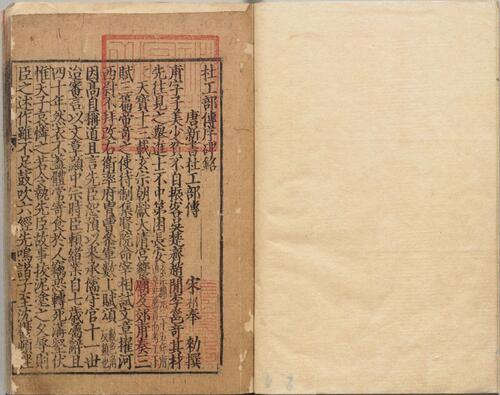 杜工部傳序碑銘
唐新書杜工部傳
宋祁奉 勅撰
甫字子美少貧不自振客吳楚齊趙間李邕奇其材
先往見之舉進士不中第困長安
天寶十三載玄宗朝獻太清宮饗廟及郊甫奏三
賦三篇帝奇之使待制集賢院命宰相試文章擢河
西尉不拜改右衛率府冑曹參軍數上賦頌
因高自稱道且言先臣恕預以來承儒守官十一世
迨審言以文章顯中宗時臣賴緒業自七歲屬辭且
四十年然衣不蓋體常寄食於人竊恐轉死溝壑伏
惟天子哀憐之若令執先臣故事拔泥塗之久辱則
臣之述作雖不足鼓吹六經先鳴諸子至沈